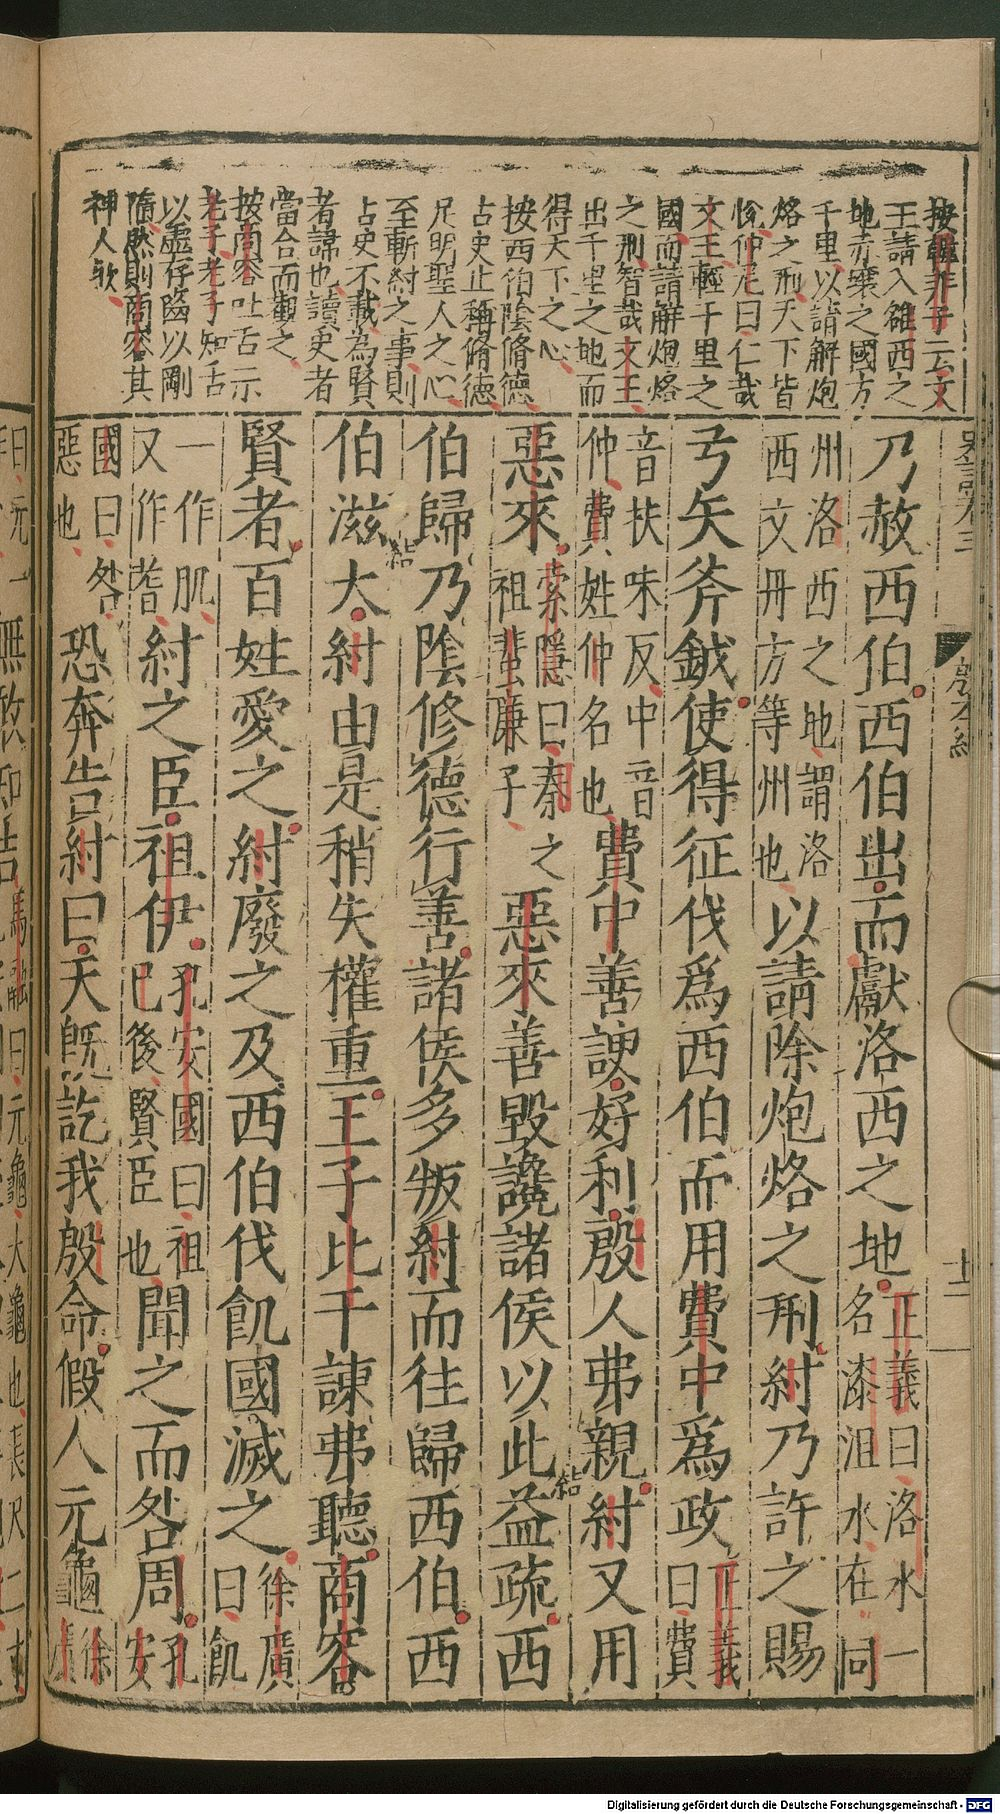 按韓非子云文
王請入雒西之
地赤壤之國方
千里以請解炮
烙之刑天下皆
悅仲尼曰仁哉
文王輕千里之
國而請解炮烙
之刑智哉文王
出千里之地而
得天下之心
按西伯陰脩德
占史止稱脩德
足明聖人之心
至斬紂之事則
占史不載為賢
者諱也讀史者
當合而觀之
按商容吐舌示
老子老子知舌
以虛存齒以剛
隨然則商容其
神人歟
史記卷三
殷本紀
十一
乃赦西伯西伯出而獻洛西之地正義曰洛水一名漆沮水在同
州洛西之地謂洛西文丹方等州也以請除炮烙之刑紂乃許之賜
弓矢斧鉞使得征伐爲西伯而用費中爲政正義曰費
音扶味反中音仲費姓仲名也費中善諛好利殷人弗親紂又用
惡來索隱曰秦之祖蜚廉子惡來善毀讒諸侯以此益疏西
伯歸乃陰修德行善諸侯多叛紂而往歸西伯西
伯滋大紂由是稍失權重王子比干諫弗聽商容
賢者百姓愛之紂廢之及西伯伐飢國滅之徐廣曰飢
一作肌又作耆紂之臣祖伊孔安國曰祖已後賢臣也聞之而咎周孔安
國曰咎惡也恐奔告紂曰天既訖我殷命假人元龜徐廣
Digitalisierung gefördert durch die Deutsche Forschungsgemeinschaft - DFG